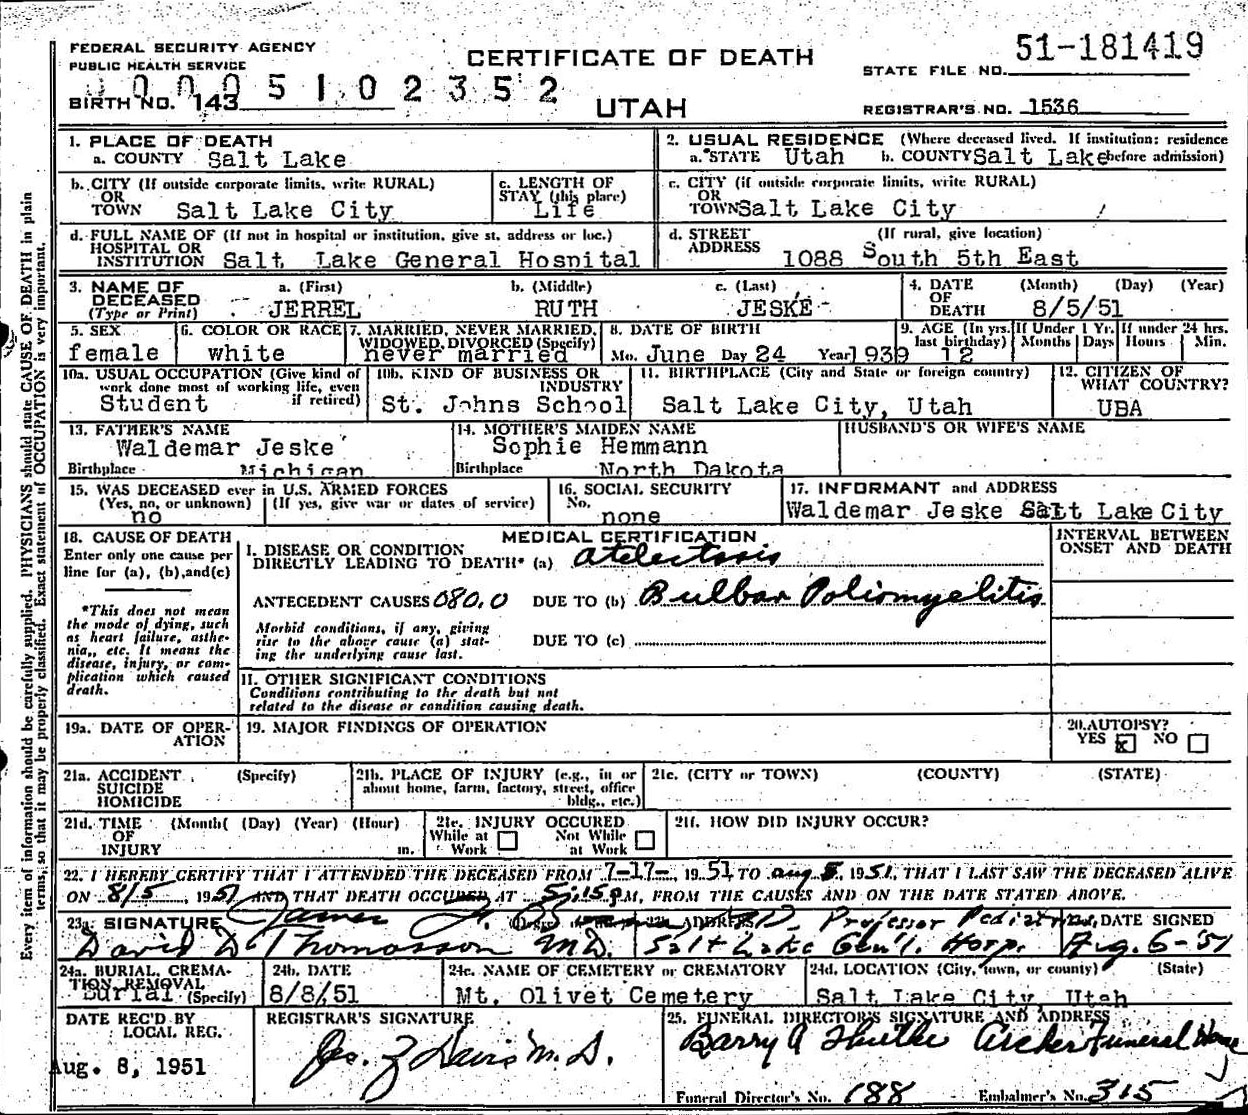 FEDERAL SECURITY AGENCY
PUBLIC HEALTH SERVICE
CERTIFICATE OF DEATH
51-181419
STATE FILE NO.
0 0 0 0 5 1 0 2 3 5 2
BIRTH NO. 143
UTAH
REGISTRAR'S NO. 1536
Every item of information should be carefully supplied. PHYSICIANS should state CAUSE OF DEATH in plain
terms, so that it may be properly classified. Exact statement of OCCUPATION is very important.
1. PLACE OF DEATH
a. COUNTY Salt Lake
2. USUAL RESIDENCE (Where deceased lived. If institution: residence
a. STATE Utah b. COUNTY Salt Lake before admission)
b. CITY (If outside corporate limits, write RURAL)
OR
TOWN Salt Lake City
c. LENGTH OF
STAY (this place)
Life
c. CITY (if outside corporate limits, write RURAL)
OR
TOWN Salt Lake City
d. FULL NAME OF (If not in hospital or institution, give st. address or loc.)
HOSPITAL OR
INSTITUTION Salt Lake General Hospital
d. STREET (If rural, give location)
ADDRESS 1088 South 5th East
3. NAME OF
DECEASED
(Type or Print)
a. (First) b. (Middle) c. (Last)
JERREL RUTH JESKE
4. DATE (Month) (Day) (Year)
OF
DEATH 8/5/51
5. SEX
female
6. COLOR OR RACE
white
7. MARRIED, NEVER MARRIED,
WIDOWED, DIVORCED (Specify)
never married
8. DATE OF BIRTH
Mo. June Day 24 Year 1939
9. AGE (In yrs.
last birthday)
12
If Under 1 Yr.
Months Days
If under 24 hrs.
Hours Min.
10a. USUAL OCCUPATION (Give kind of
work done most of working life, even
if retired)
Student
10b. KIND OF BUSINESS OR
INDUSTRY
St. Johns School
11. BIRTHPLACE (City and State or foreign country)
Salt Lake City, Utah
12. CITIZEN OF
WHAT COUNTRY?
UBA
13. FATHER'S NAME
Waldemar Jeske
Birthplace Michigan
14. MOTHER'S MAIDEN NAME
Sophie Hemmann
Birthplace North Dakota
HUSBAND'S OR WIFE'S NAME
15. WAS DECEASED ever in U.S. ARMED FORCES
(Yes, no, or unknown) (If yes, give war or dates of service)
no
16. SOCIAL SECURITY
No.
none
17. INFORMANT and ADDRESS
Waldemar Jeske Salt Lake City
18. CAUSE OF DEATH
Enter only one cause per
line for (a), (b), and (c)
*This does not mean
the mode of dying, such
as heart failure, asthe-
nia,, etc. It means the
disease, injury, or com-
plication which caused
death.
MEDICAL CERTIFICATION
I. DISEASE OR CONDITION
DIRECTLY LEADING TO DEATH* (a) Atelectasis
ANTECEDENT CAUSES 080.0 DUE TO (b) Bulbar Poliomyelitis
Morbid conditions, if any, giving
rise to the above cause (a) stat-
ing the underlying cause last.
DUE TO (c)
II. OTHER SIGNIFICANT CONDITIONS
Conditions contributing to the death but not
related to the disease or condition causing death.
INTERVAL BETWEEN
ONSET AND DEATH
19a. DATE OF OPER-
ATION
19. MAJOR FINDINGS OF OPERATION
20. AUTOPSY?
YES x NO
21a. ACCIDENT (Specify)
SUICIDE
HOMICIDE
21b. PLACE OF INJURY (e.g., in or
about home, farm, factory, street, office
bldg., etc.)
21c. (CITY or TOWN) (COUNTY) (STATE)
21d. TIME (Month( (Day) (Year) (Hour)
OF
INJURY m.
21e. INJURY OCCURED
While at Work Not While at Work
21f. HOW DID INJURY OCCUR?
22. I HEREBY CERTIFY THAT I ATTENDED THE DECEASED FROM 7-17-, 1951, TO Aug 5, 1951, THAT I LAST SAW THE DECEASED ALIVE
ON 8/5, 1951 AND THAT DEATH OCCURED AT 5:15 P M, FROM THE CAUSES AND ON THE DATE STATED ABOVE.
23a. SIGNATURE
David D Thomasson M.D.
ADDRESS Professor Pediatrics
Salt Lake Gen'l. Hosp.
DATE SIGNED
Aug. 6-'51
24a. BURIAL, CREMA-
TION, REMOVAL
Burial (Specify)
24b. DATE
8/8/51
24c. NAME OF CEMETERY or CREMATORY
Mt. Olivet Cemetery
24d. LOCATION (City, town, or county) (State)
Salt Lake City, Utah
DATE REC'D BY
LOCAL REG.
Aug. 8, 1951
REGISTRAR'S SIGNATURE
25. FUNERAL DIRECTOR'S SIGNATURE AND ADDRESS
Archer Funeral Home
Funeral Director's No. 188 Embalmer's No. 315